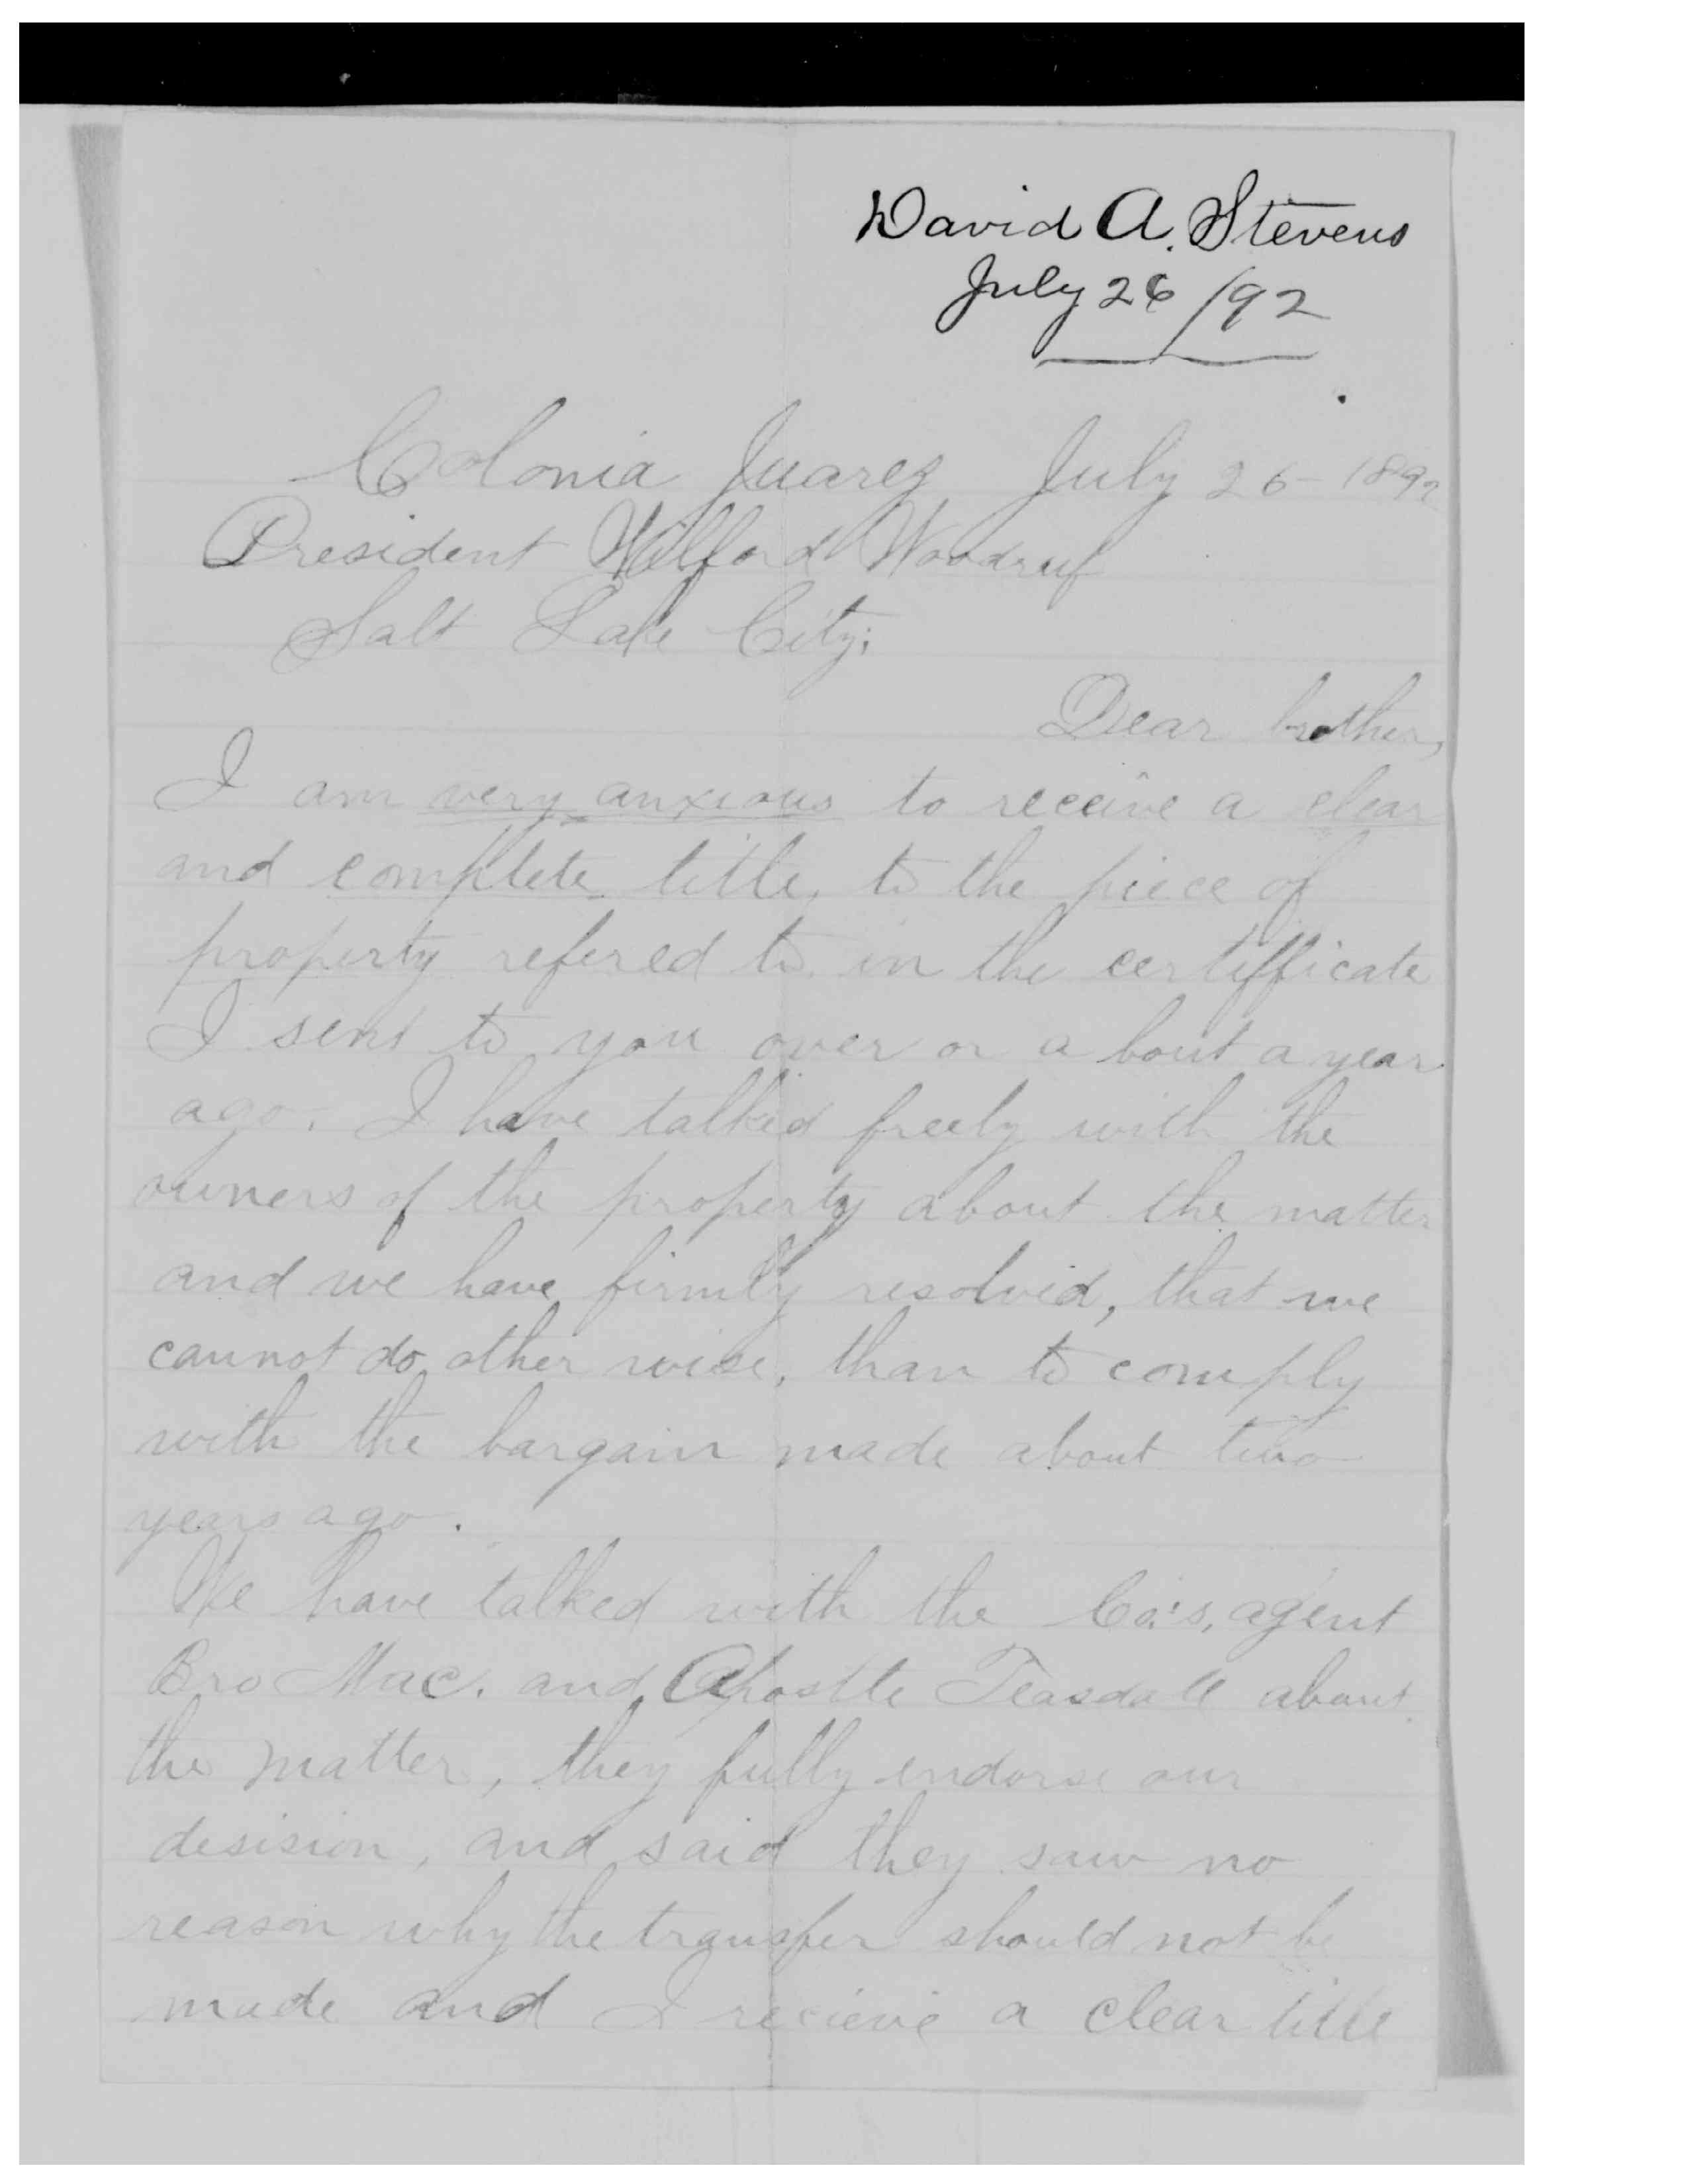 David A. Stevens
July 26/92
Colonia Juarez July 26-1892
President Wilford Woodruf
Salt Lake City;
Dear brother,
I am very anxious to receive a clear
and complete title, to the piece of
property refered to in the certifficate
I sent to you over or a bout a year
ago. I have talked freely with the
owners of the property about the matter
and we have firmly resolved, that we
cannot do other wise, than to comply
with the bargain made about two
years ago.
We have talked with the Co.'s, agent
Bro Mac. and Apostle Teasdall about
the matter, they fully endorse our
desision, and said they saw no
reason why the transfer should not be
made and I recieve a clear title